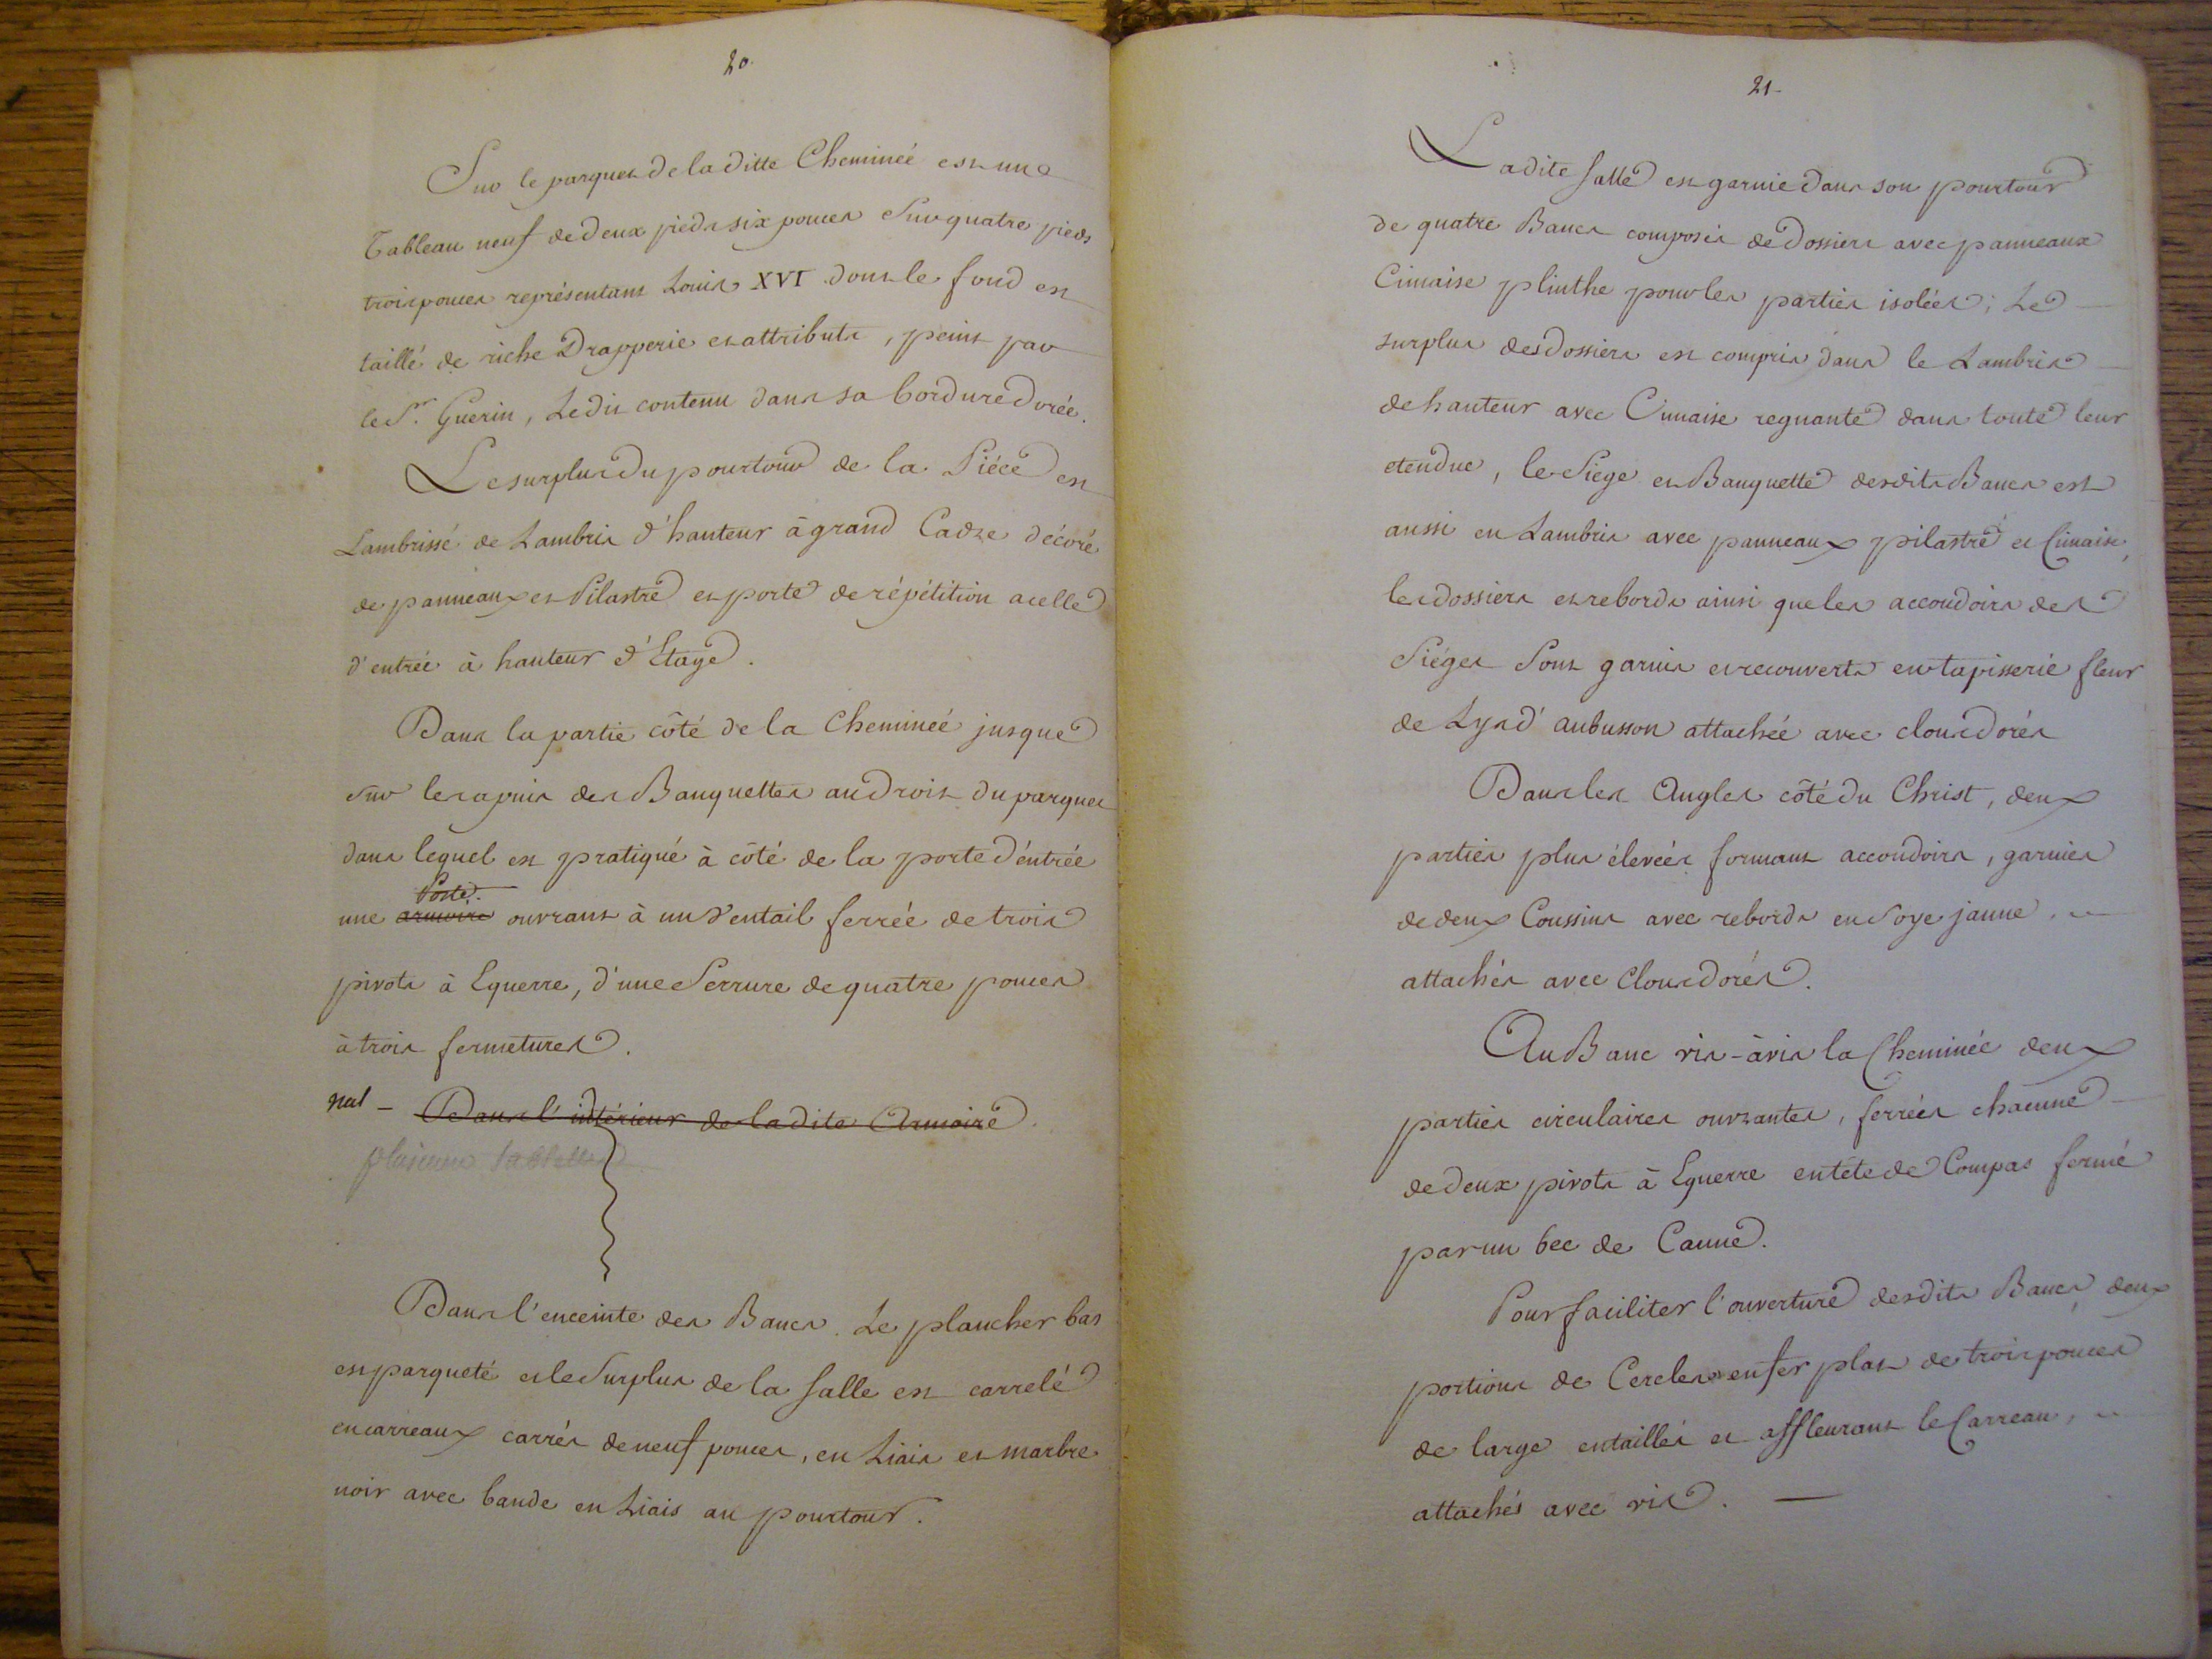 20.
Sur le parquet de la ditte Cheminée est une
Tableau neuf de deux pieds six pouces Sur quatre pieds
trois pouces représentant Louis XVI dont le fond est
taillé de riche Drapperie et attributs, peint par
le Sr. Guerin, Ledit contenu dans sa bordure dorée.
Le surplus du pourtour de la Piéce est
Lambrissé de Lambris d'hauteur à grand Cadre décoré
de panneaux et Pilastre et porte de répétition acelle
d'entrée à hauteur d'Etage.
Dans la partie côté de la Cheminée jusque
sur les apuis des Banquettes au droit du parquet
dans lequel est pratiqué à côté de la porte d'éntrée
Porte.
une armoire ouvrant à un Ventail ferrée de trois
pivots à Equerre, d'une Serrure de quatre pouces
à trois fermetures.
nul - Dans l'intérieur de ladite Armoire.
plusieurs tablettes
Dans l'enceinte des Bancs. Le plancher bas
est parqueté et le Surplus de la Salle est carrelé
en carreaux carrés de neuf pouces, en Liais et marbre
noir avec bande en Liais au pourtour.
21.
Ladite Salle est garnie dans son pourtour
de quatre Bancs composés de Dossiers avec panneaux
Cimaise plinthe pour les parties isolées; Le
surplus des Dossiers est compris dans le Lambris
de hauteur avec Cimaise regnante dans toute leur
etendue, le Siege et Banquette desdits Bancs est
aussi en Lambris avec panneaux pilastre et Cimaise,
les dossiers et rebords ainsi que les accoudoirs des
Siéges Sont garnis et recouverts en tapisserie fleur
de Lys d'aubusson attachée avec clous dorés
Dans les Angles côté du Christ, deux
parties plus élevées formant accoudoirs, garnies
de deux Coussins avec rebords en Soye jaune,
attachés avec Clous dorés.
Au Banc vis-à vis la Cheminée deux
parties circulaires ouvrantes, ferrées chacune
de deux pivots à Equerre en tête de Compas fermé
par un bec de Canne.
Pour faciliter l'ouverture desdits Bancs deux
portions de Cercles en fer plat de trois pouces
de large entaillés et affleurant le Carreau,
attachés avec vis.